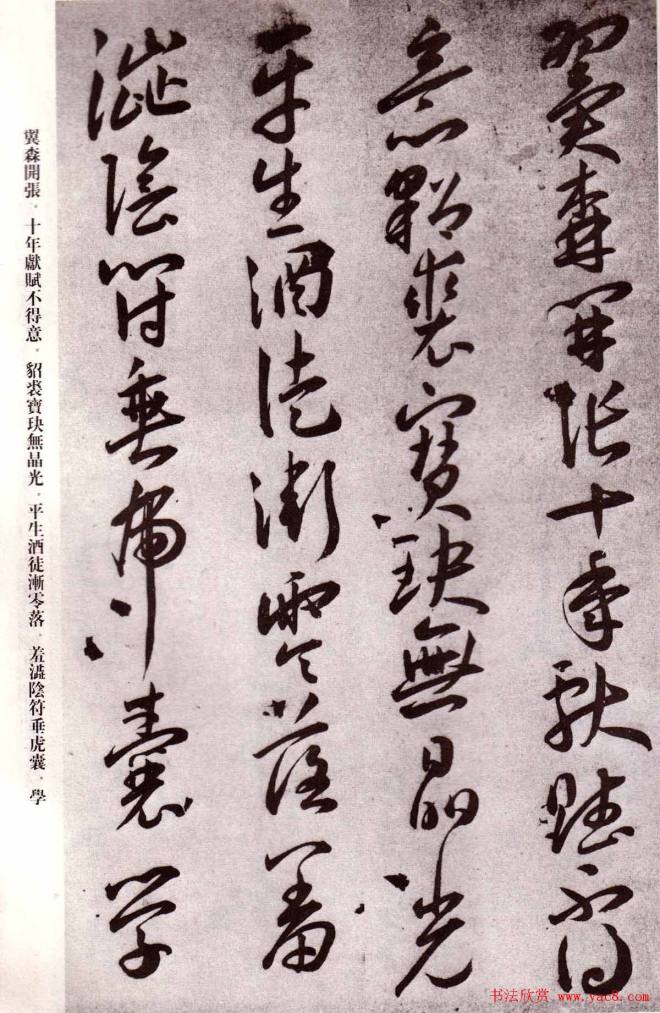 翼森開張十年獻賦不得
意貂裘寶玦無晶光
平生酒徒漸零落羞
澁陰符垂虎囊學
翼森開張．十年獻賦不得意．貂裘寶玦無晶光．平生酒徒漸零落．羞澁陰符垂虎囊．學
书法欣赏 www.yac8.com